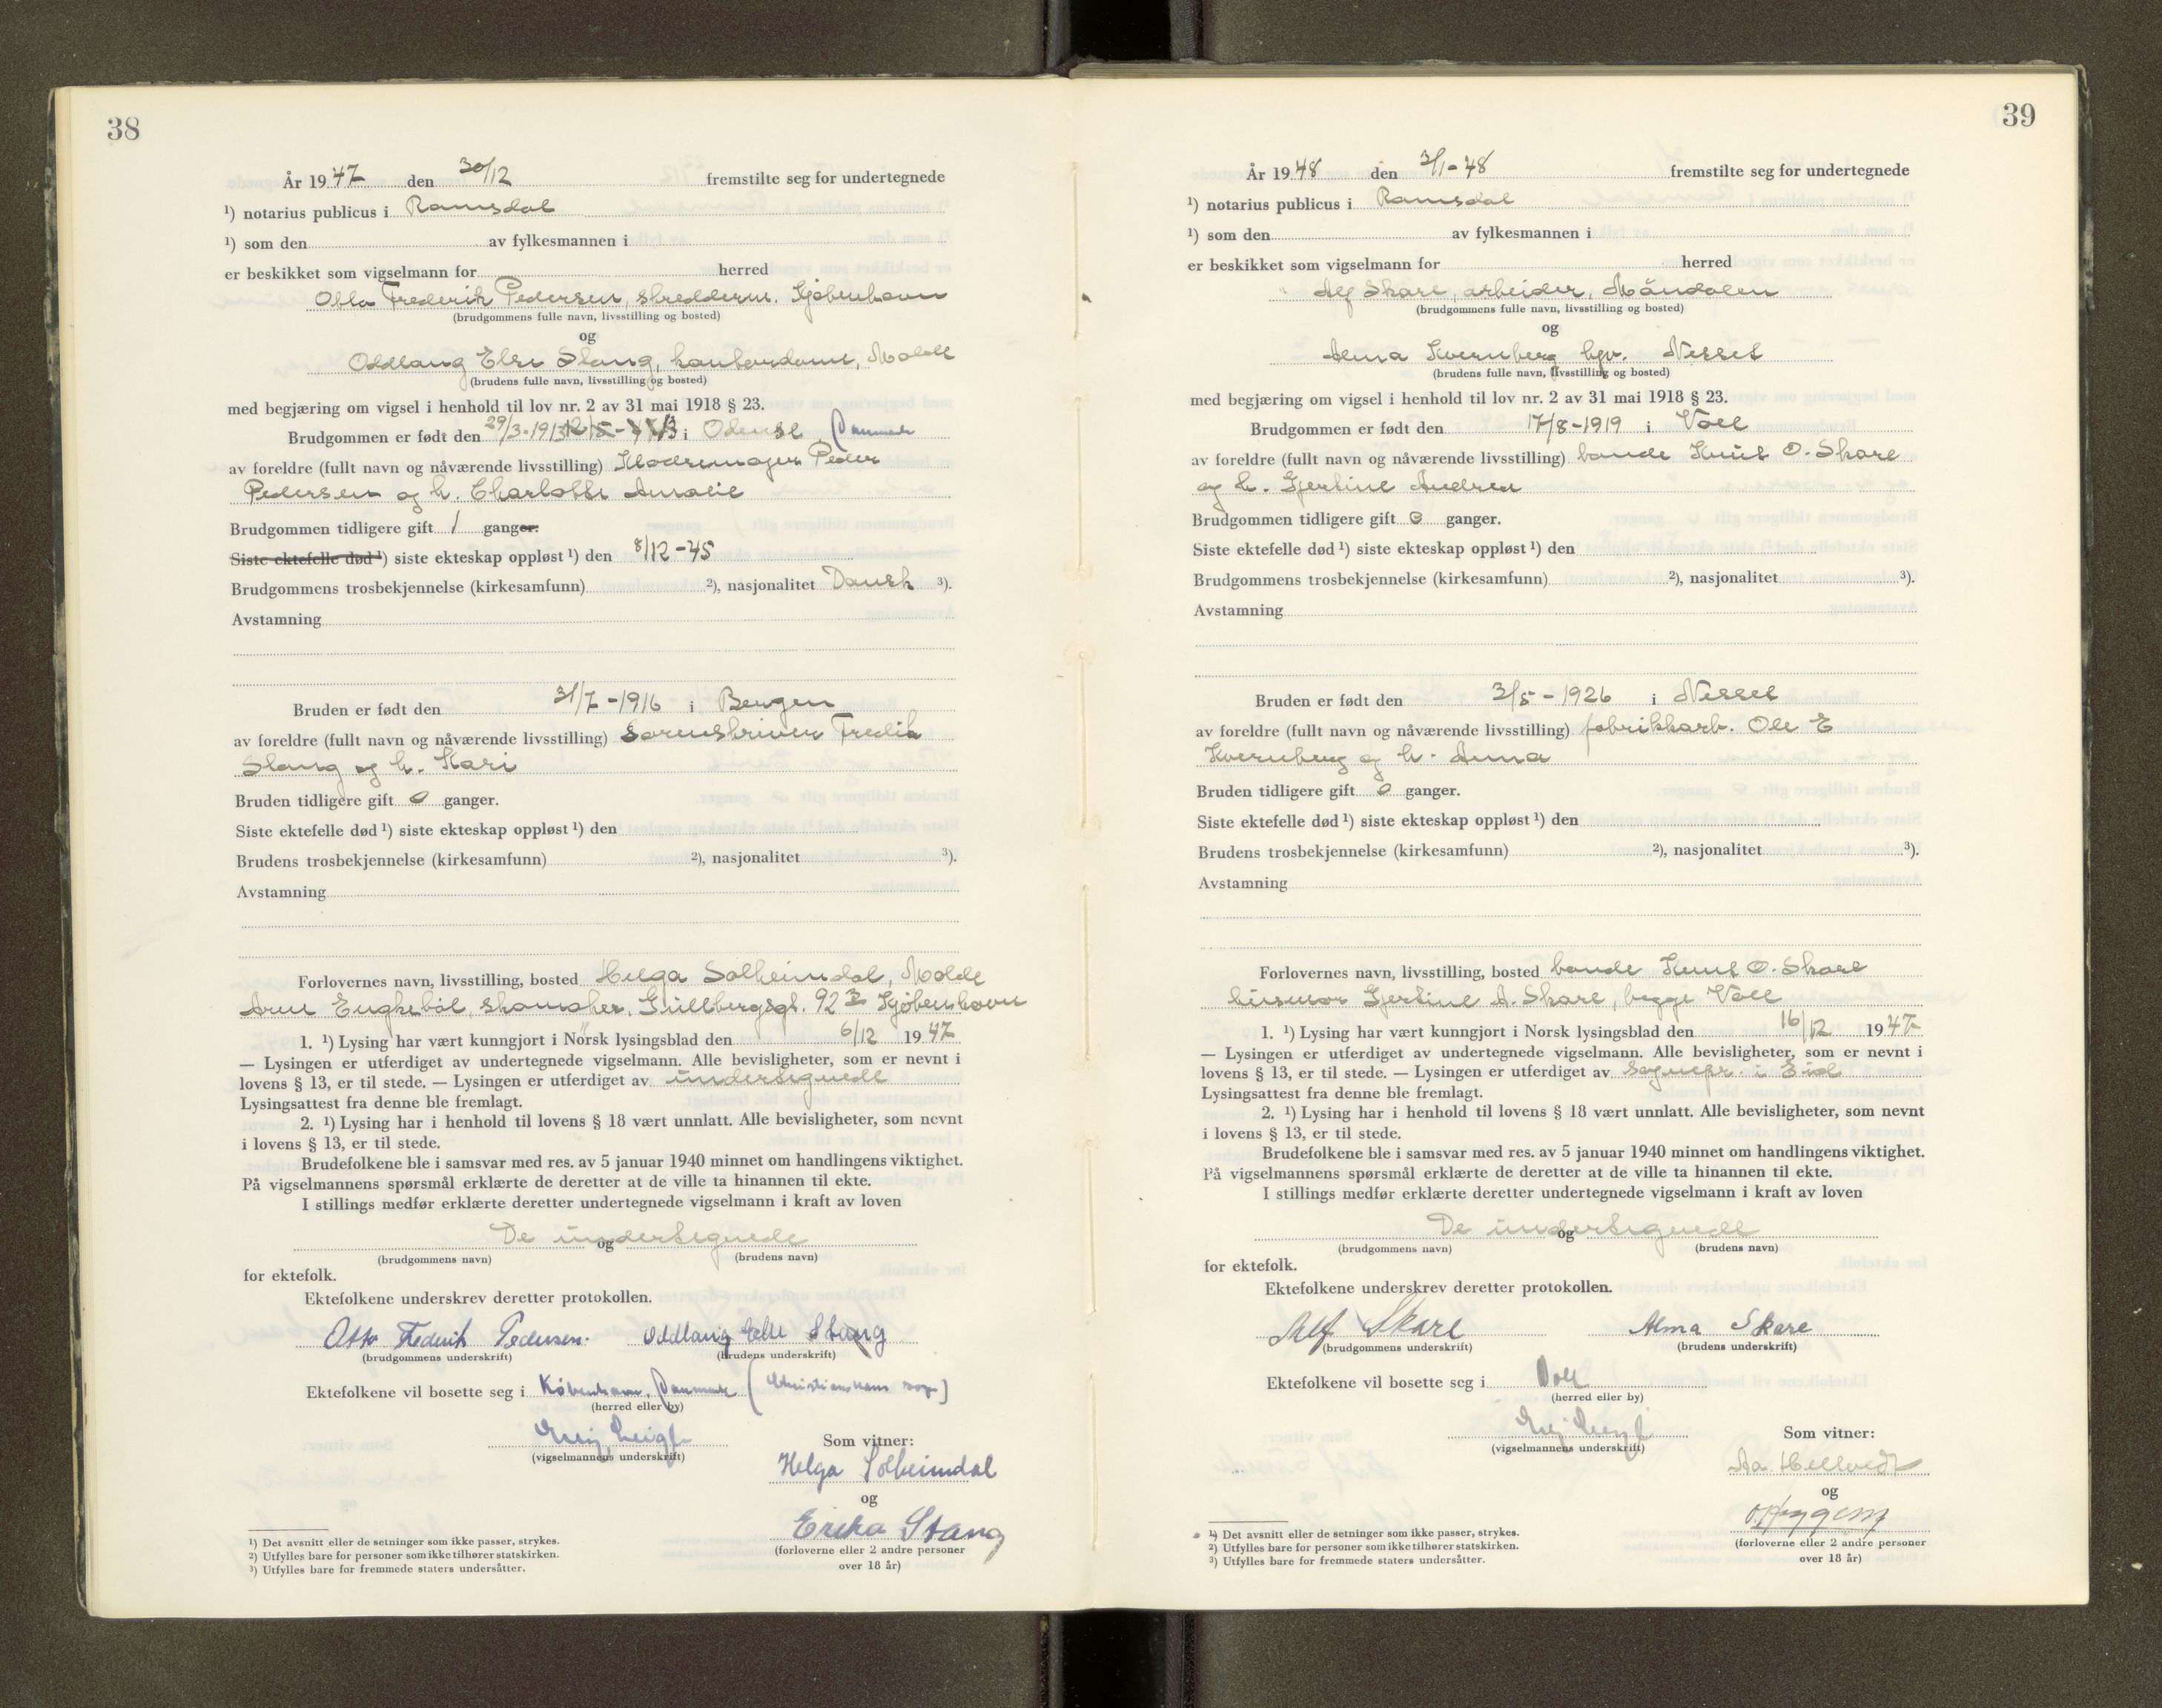 38
År 1947 den 30/12 fremstilte seg for undertegnede
¹) notarius publicus i Romsdal
¹) som den av fylkesmannen i
er beskikket som vigselmann for herred
Otto Frederik Pedersen, skredderm. Kjøbenhavn
(brudgommens fulle navn, livsstilling og bosted)
og
Oddlaug Else Stang, kontordame, Molde
(brudens fulle navn, livsstilling og bosted)
med begjæring om vigsel i henhold til lov nr. 2 av 31 mai 1918 § 23.
Brudgommen er født den 29/3-1913 i Odense (Danmark
av foreldre (fullt navn og nåværende livsstilling) Peder
Pedersen og h. Charlotte Amalie
Brudgommen tidligere gift 1 ganger.
Siste ektefelle død ¹) siste ekteskap oppløst ¹) den 8/12-45
Brudgommens trosbekjennelse (kirkesamfunn) ²), nasjonalitet Dansk ³).
Avstamning
Bruden er født den 31/7-1916 i Bergen
av foreldre (fullt navn og nåværende livsstilling) Sorenskriver Fredrik
Stang og h. Kari
Bruden tidligere gift 0 ganger.
Siste ektefelle død ¹) siste ekteskap oppløst ¹) den
Brudens trosbekjennelse (kirkesamfunn) ²), nasjonalitet ³).
Avstamning
Forlovernes navn, livsstilling, bosted Helga Solheimdal, Molde
Arne Enghebøl, skomaker, Gullbergsgt. 92 3 Kjøbenhavn
1. ¹) Lysing har vært kunngjort i Norsk lysingsblad den 6/12 1947
— Lysingen er utferdiget av undertegnede vigselmann. Alle bevisligheter, som er nevnt i
lovens § 13, er til stede. — Lysingen er utferdiget av undertegnede
Lysingsattest fra denne ble fremlagt.
2. ¹) Lysing har i henhold til lovens § 18 vært unnlatt. Alle bevisligheter, som nevnt
i lovens § 13, er til stede.
Brudefolkene ble i samsvar med res. av 5 januar 1940 minnet om handlingens viktighet.
På vigselmannens spørsmål erklærte de deretter at de ville ta hinannen til ekte.
I stillings medfør erklærte deretter undertegnede vigselmann i kraft av loven
De undertegnede
og
(brudgommens navn) (brudens navn)
for ektefolk.
Ektefolkene underskrev deretter protokollen.
Otto Frederik Pedersen. Oddlaug Else Stang
(brudgommens underskrift) (brudens underskrift)
Ektefolkene vil bosette seg i København, Danmark (Christianshavns sogn)
(herred eller by)
(vigselmannens underskrift)
Som vitner:
Helga Solheimdal
og
Erika Stang
(forloverne eller 2 andre personer
over 18 år)
¹) Det avsnitt eller de setninger som ikke passer, strykes.
²) Utfylles bare for personer som ikke tilhører statskirken.
³) Utfylles bare for fremmede staters undersåtter.
39
År 1948 den 3/1-48 fremstilte seg for undertegnede
¹) notarius publicus i Romsdal
¹) som den av fylkesmannen i
er beskikket som vigselmann for herred
Alf Skare, arbeider, Måndalen
(brudgommens fulle navn, livsstilling og bosted)
og
Alma Kvernberg hjv. Nesset
(brudens fulle navn, livsstilling og bosted)
med begjæring om vigsel i henhold til lov nr. 2 av 31 mai 1918 § 23.
Brudgommen er født den 17/8-1919 i Voll
av foreldre (fullt navn og nåværende livsstilling) bonde Knut O. Skare
og h. Gjertine Andrea
Brudgommen tidligere gift 0 ganger.
Siste ektefelle død ¹) siste ekteskap oppløst ¹) den
Brudgommens trosbekjennelse (kirkesamfunn) ²), nasjonalitet ³).
Avstamning
Bruden er født den 3/5-1926 i Nesset
av foreldre (fullt navn og nåværende livsstilling) fabrikkarb. Ole E
Kvernberg og h. Anna
Bruden tidligere gift 0 ganger.
Siste ektefelle død ¹) siste ekteskap oppløst ¹) den
Brudens trosbekjennelse (kirkesamfunn) ²), nasjonalitet ³).
Avstamning
Forlovernes navn, livsstilling, bosted bonde Knut O. Skare
husmor Gjertine A. Skare, begge Voll
1. ¹) Lysing har vært kunngjort i Norsk lysingsblad den 16/12 1947
— Lysingen er utferdiget av undertegnede vigselmann. Alle bevisligheter, som er nevnt i
lovens § 13, er til stede. — Lysingen er utferdiget av sognepr. i Eid
Lysingsattest fra denne ble fremlagt.
2. ¹) Lysing har i henhold til lovens § 18 vært unnlatt. Alle bevisligheter, som nevnt
i lovens § 13, er til stede.
Brudefolkene ble i samsvar med res. av 5 januar 1940 minnet om handlingens viktighet.
På vigselmannens spørsmål erklærte de deretter at de ville ta hinannen til ekte.
I stillings medfør erklærte deretter undertegnede vigselmann i kraft av loven
De undertegnede
og
(brudgommens navn) (brudens navn)
for ektefolk.
Ektefolkene underskrev deretter protokollen.
Alf Skare Alma Skare
(brudgommens underskrift) (brudens underskrift)
Ektefolkene vil bosette seg i Voll
(herred eller by)
(vigselmannens underskrift)
Som vitner:
Aa. Hellvedt
og
O. Hyggem
(forloverne eller 2 andre personer
over 18 år)
¹) Det avsnitt eller de setninger som ikke passer, strykes.
²) Utfylles bare for personer som ikke tilhører statskirken.
³) Utfylles bare for fremmede staters undersåtter.